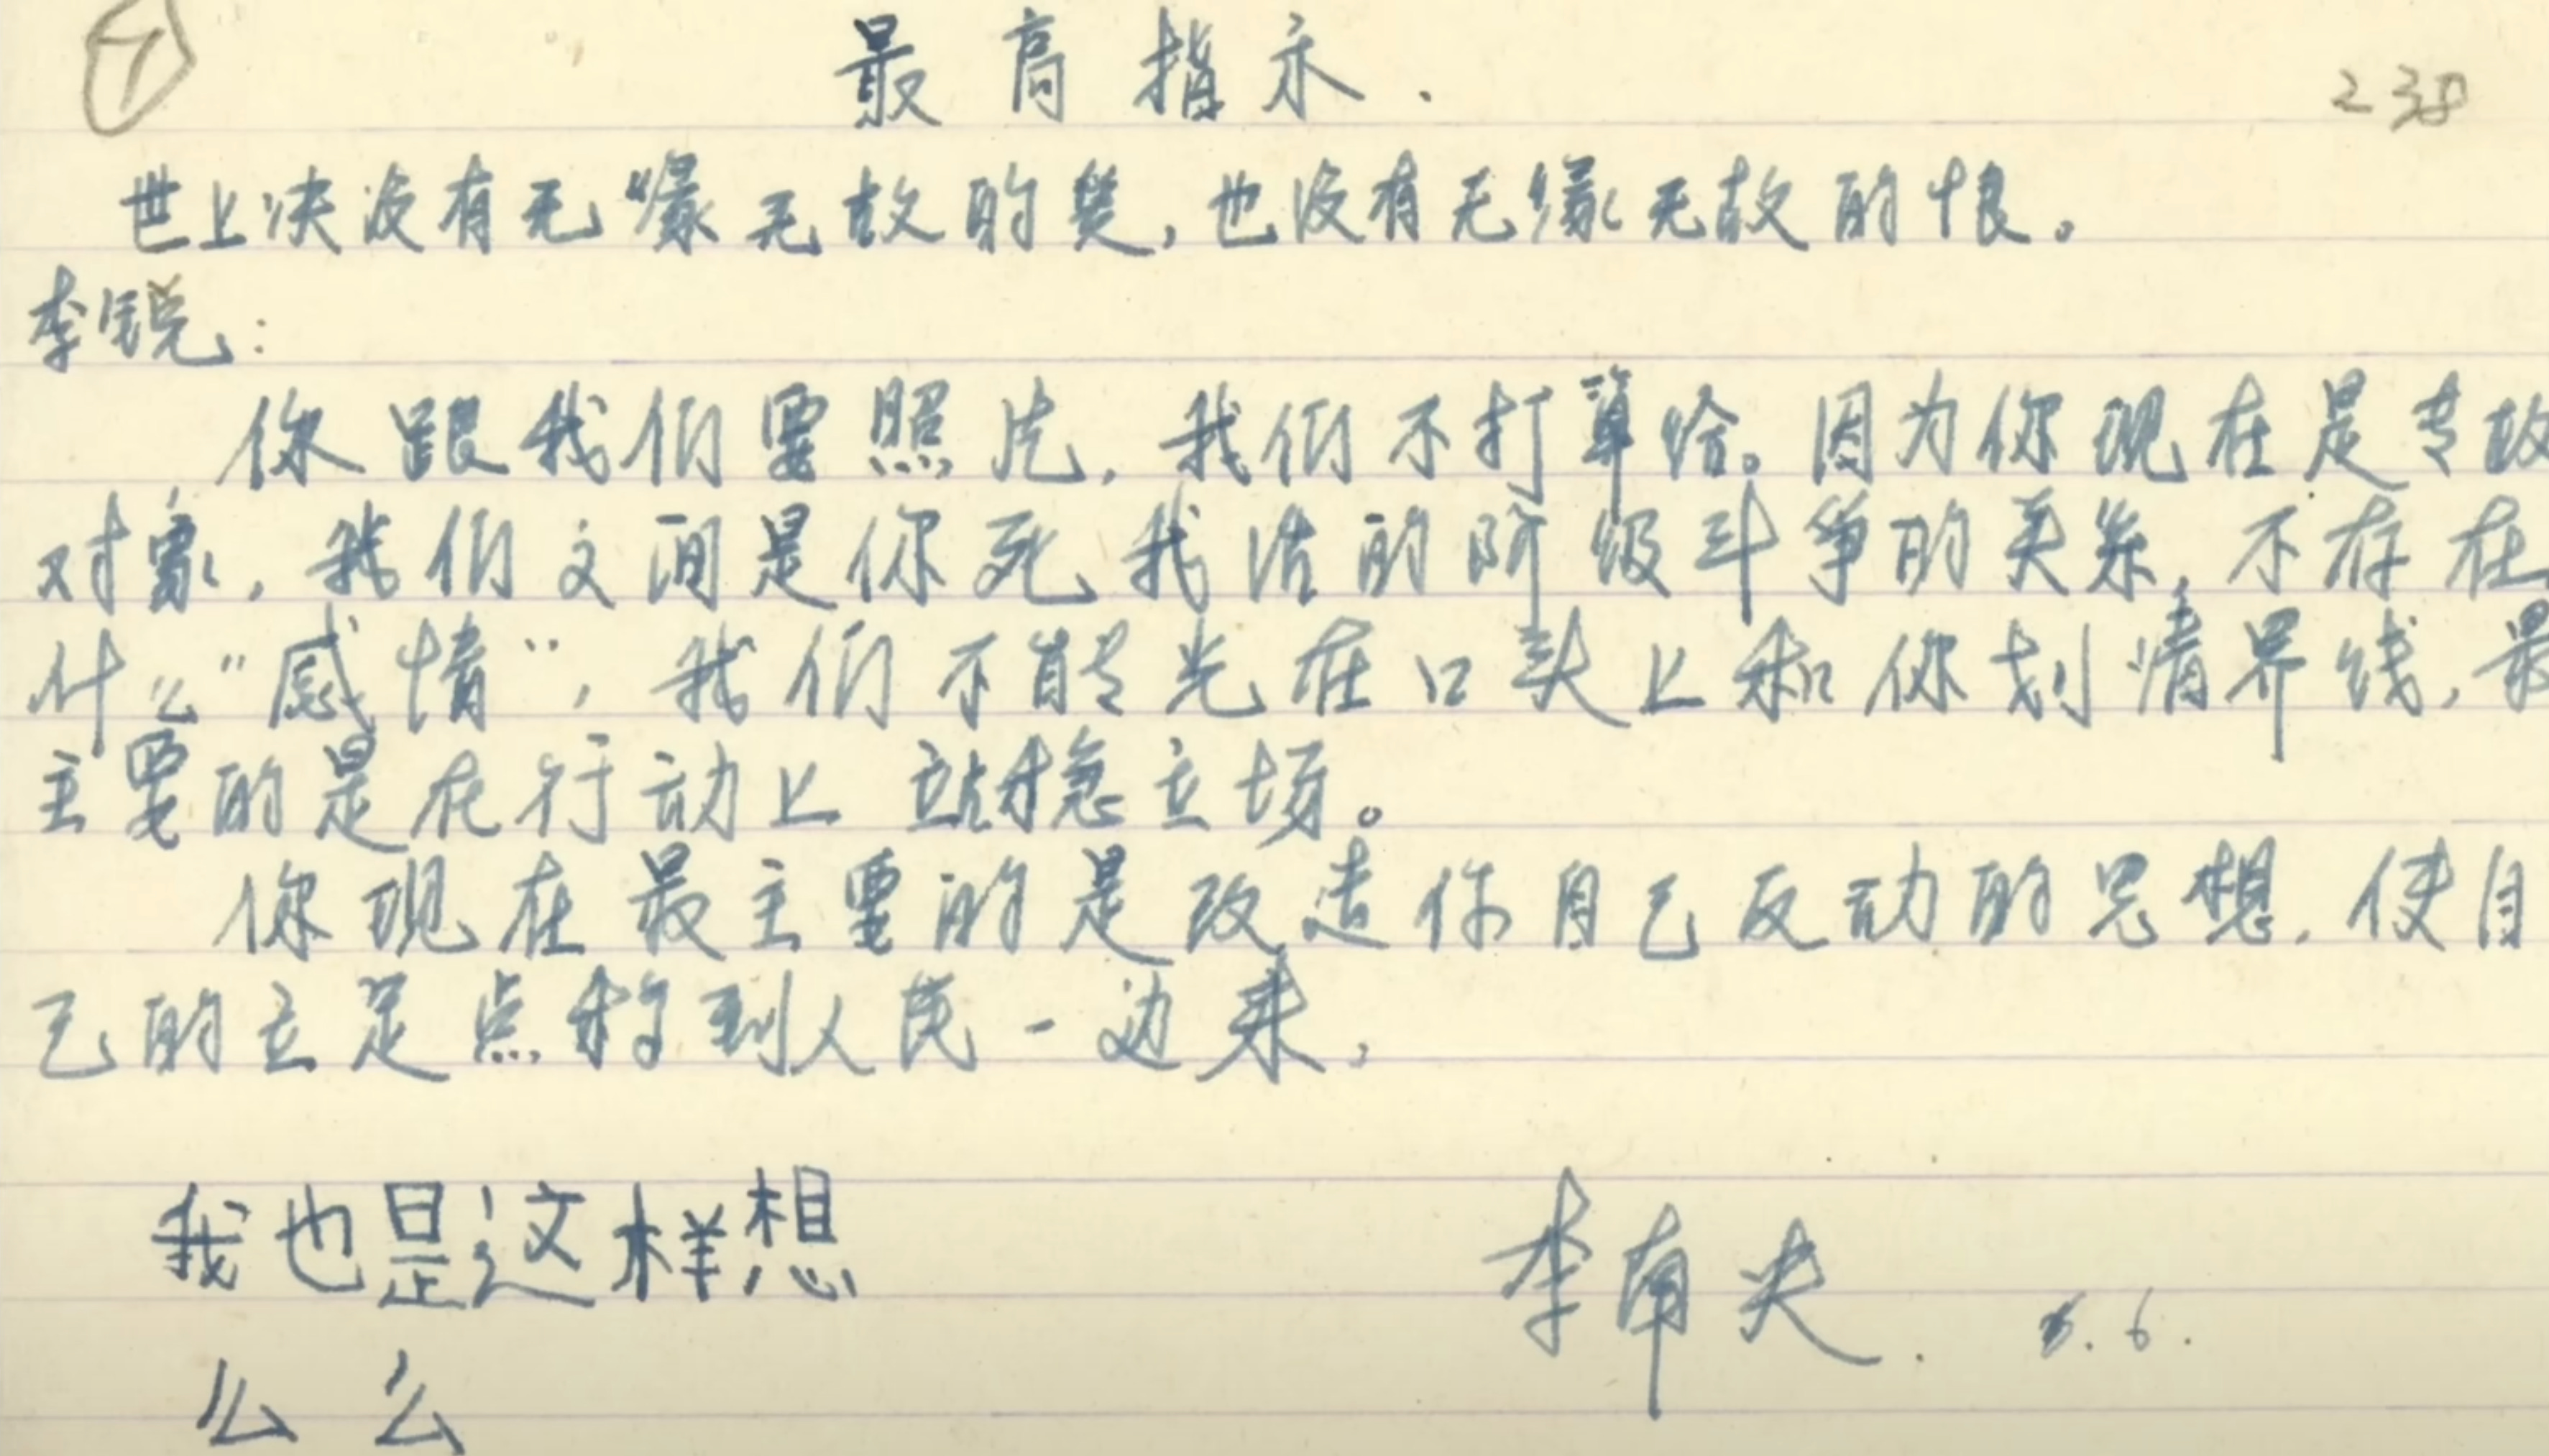 最高指示.
238
世上决没有无缘无故的爱,也没有无缘无故的恨。
李锐:
你跟我们要照片,我们不打算给。因为你现在是专政
对象,我们之间是你死我活的阶级斗争的关系,不存在
什么"感情",我们不能光在口头上和你划清界线,最
主要的是在行动上站稳立场。
你现在最主要的是改造你自己反动的思想,使自
己的立足点移到人民一边来,
我也是这样想
李南央. 6.
么么